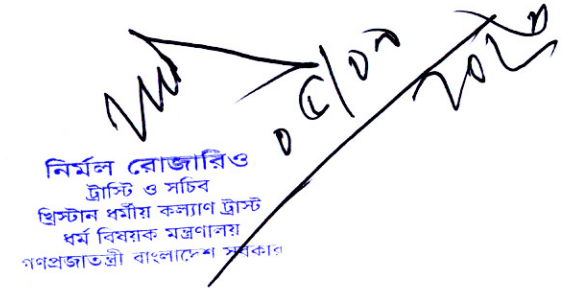 ০৫/০৯
নির্মল রোজারিও
ট্রাস্টি ও সচিব
খ্রিস্টান ধর্মীয় কল্যাণ ট্রাস্ট
ধর্ম বিষয়ক মন্ত্রণালয়
গণপ্রজাতন্ত্রী বাংলাদেশ সরকার